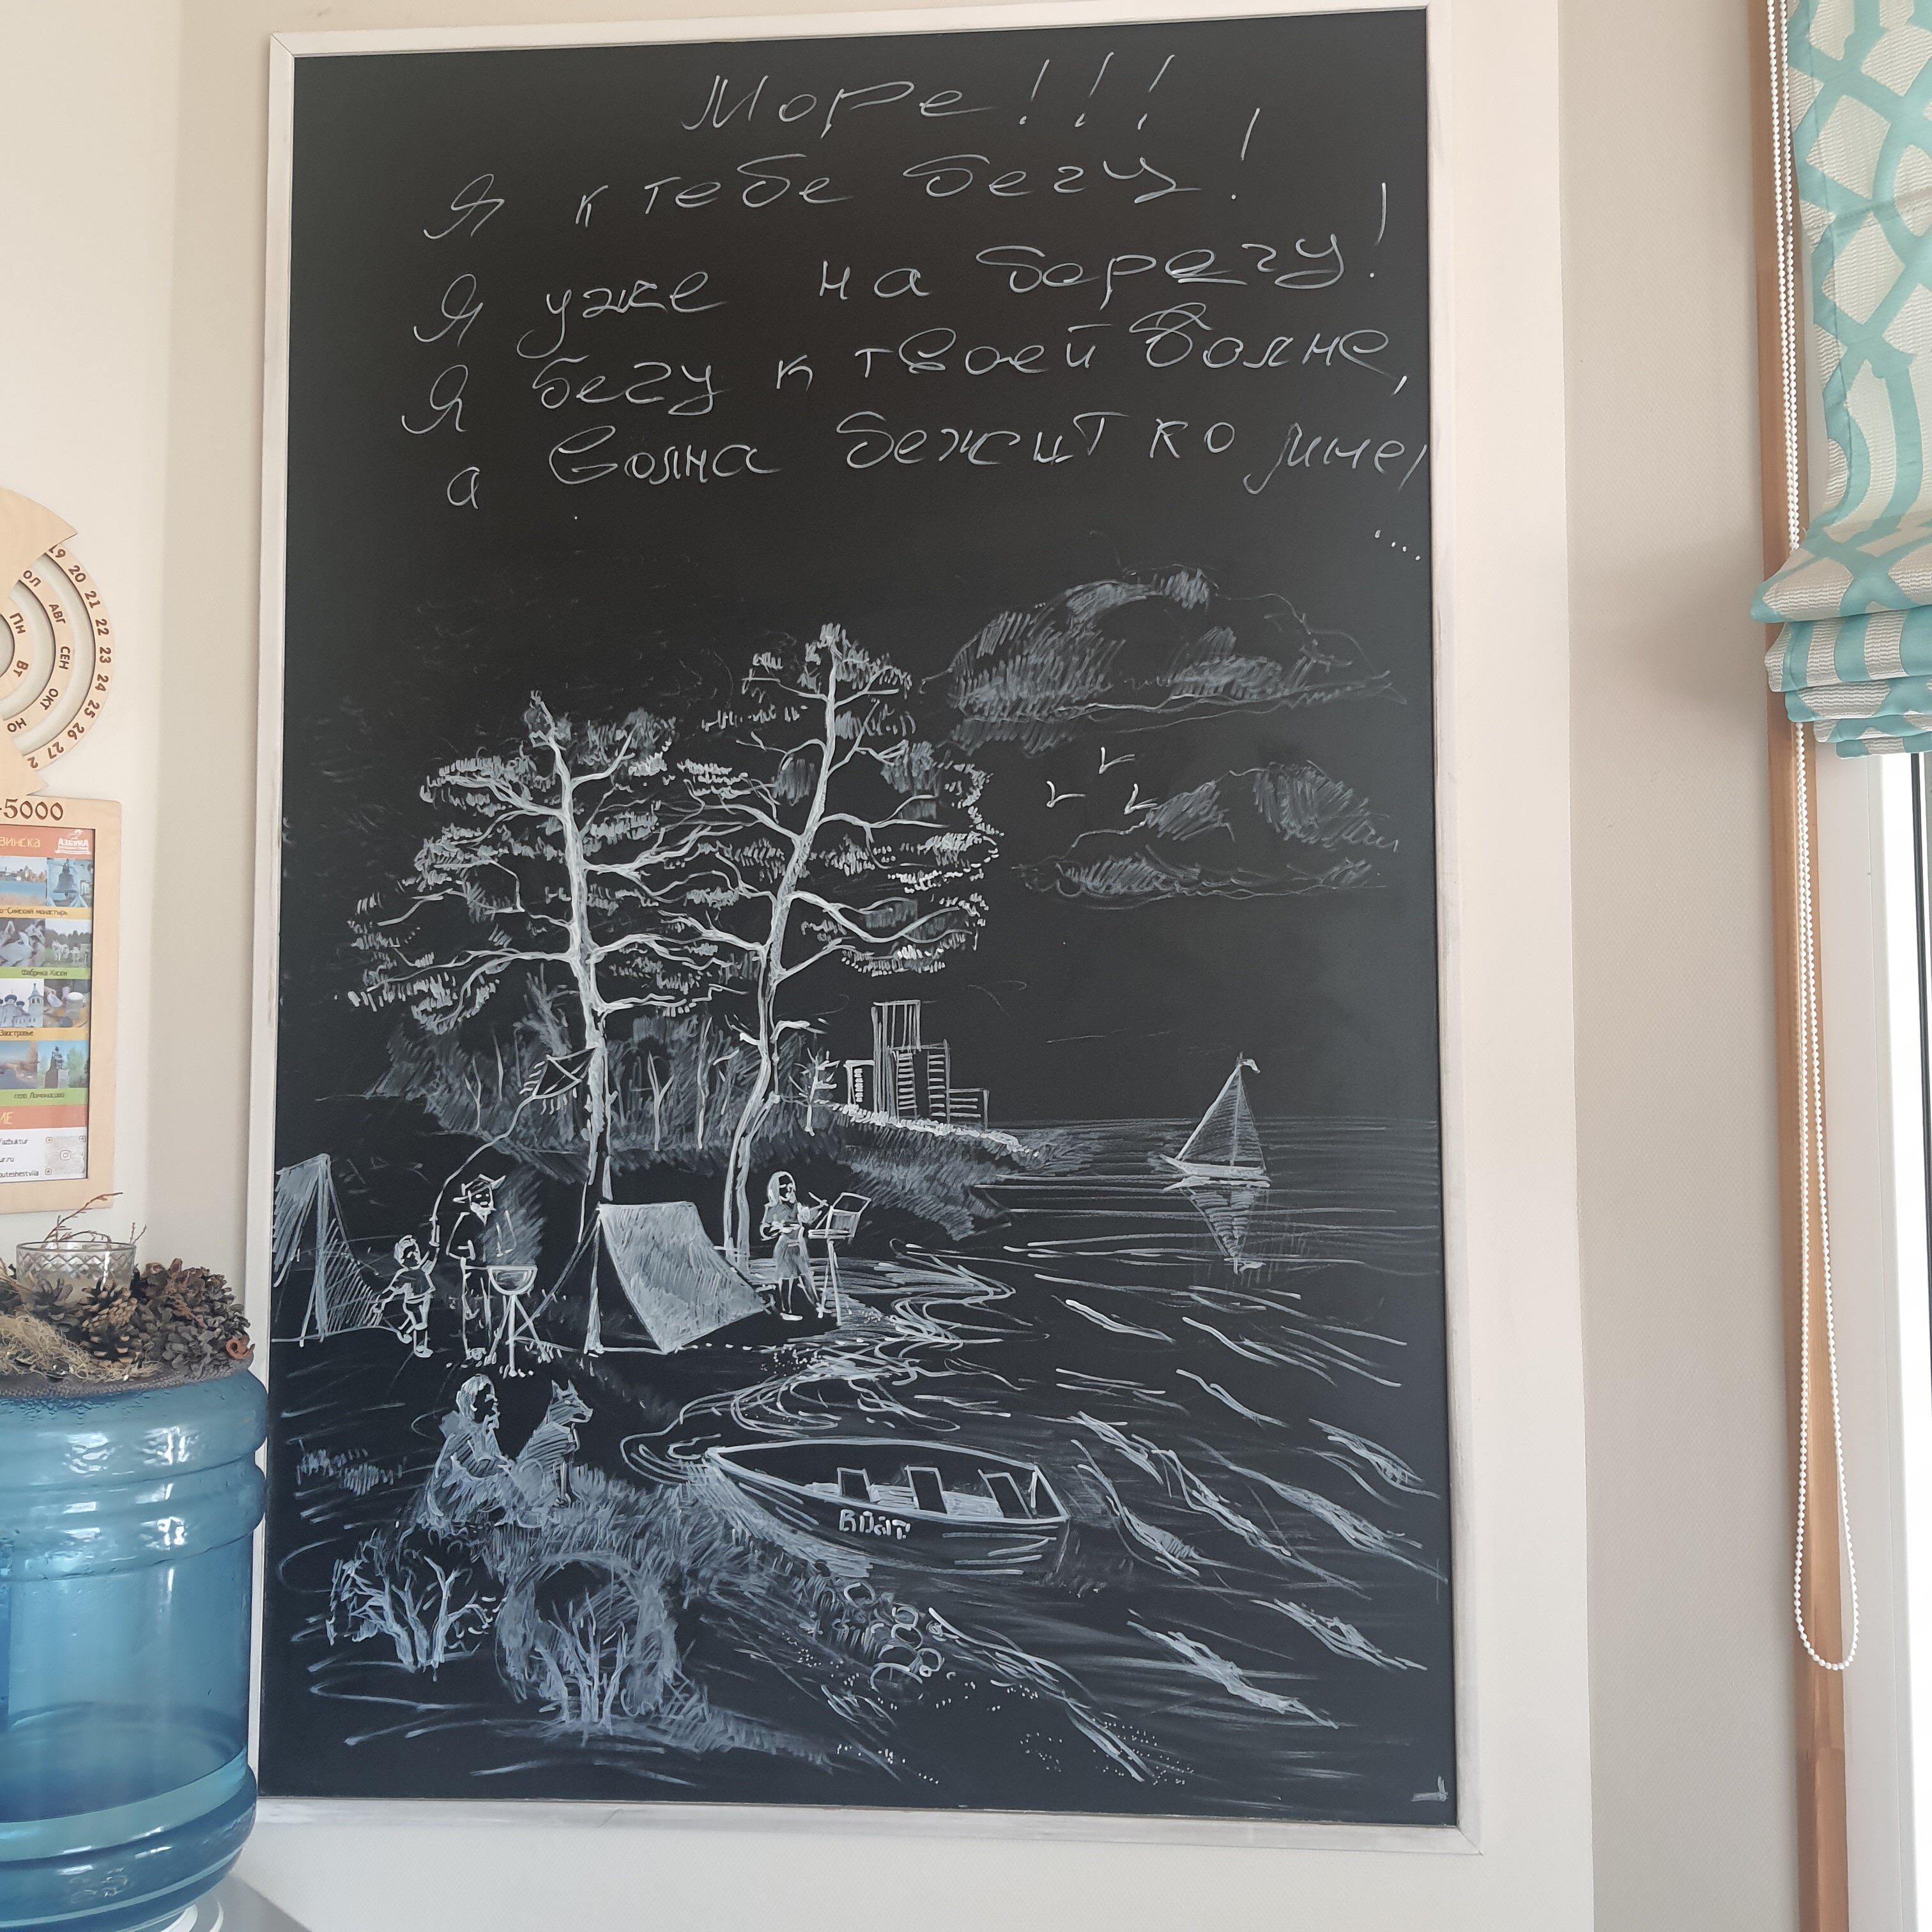 Море!!!
Я к тебе бегу!
Я уже на берегу!
Я бегу к твоей волне,
а волна бежит ко мне!
....
19
20
21
22
23
24
25
26
27
2
АВГ
СЕН
ОКТ
НО
ПН
ВТ
-5000
АЗБУКА
Фабрика Хаски
BOAT